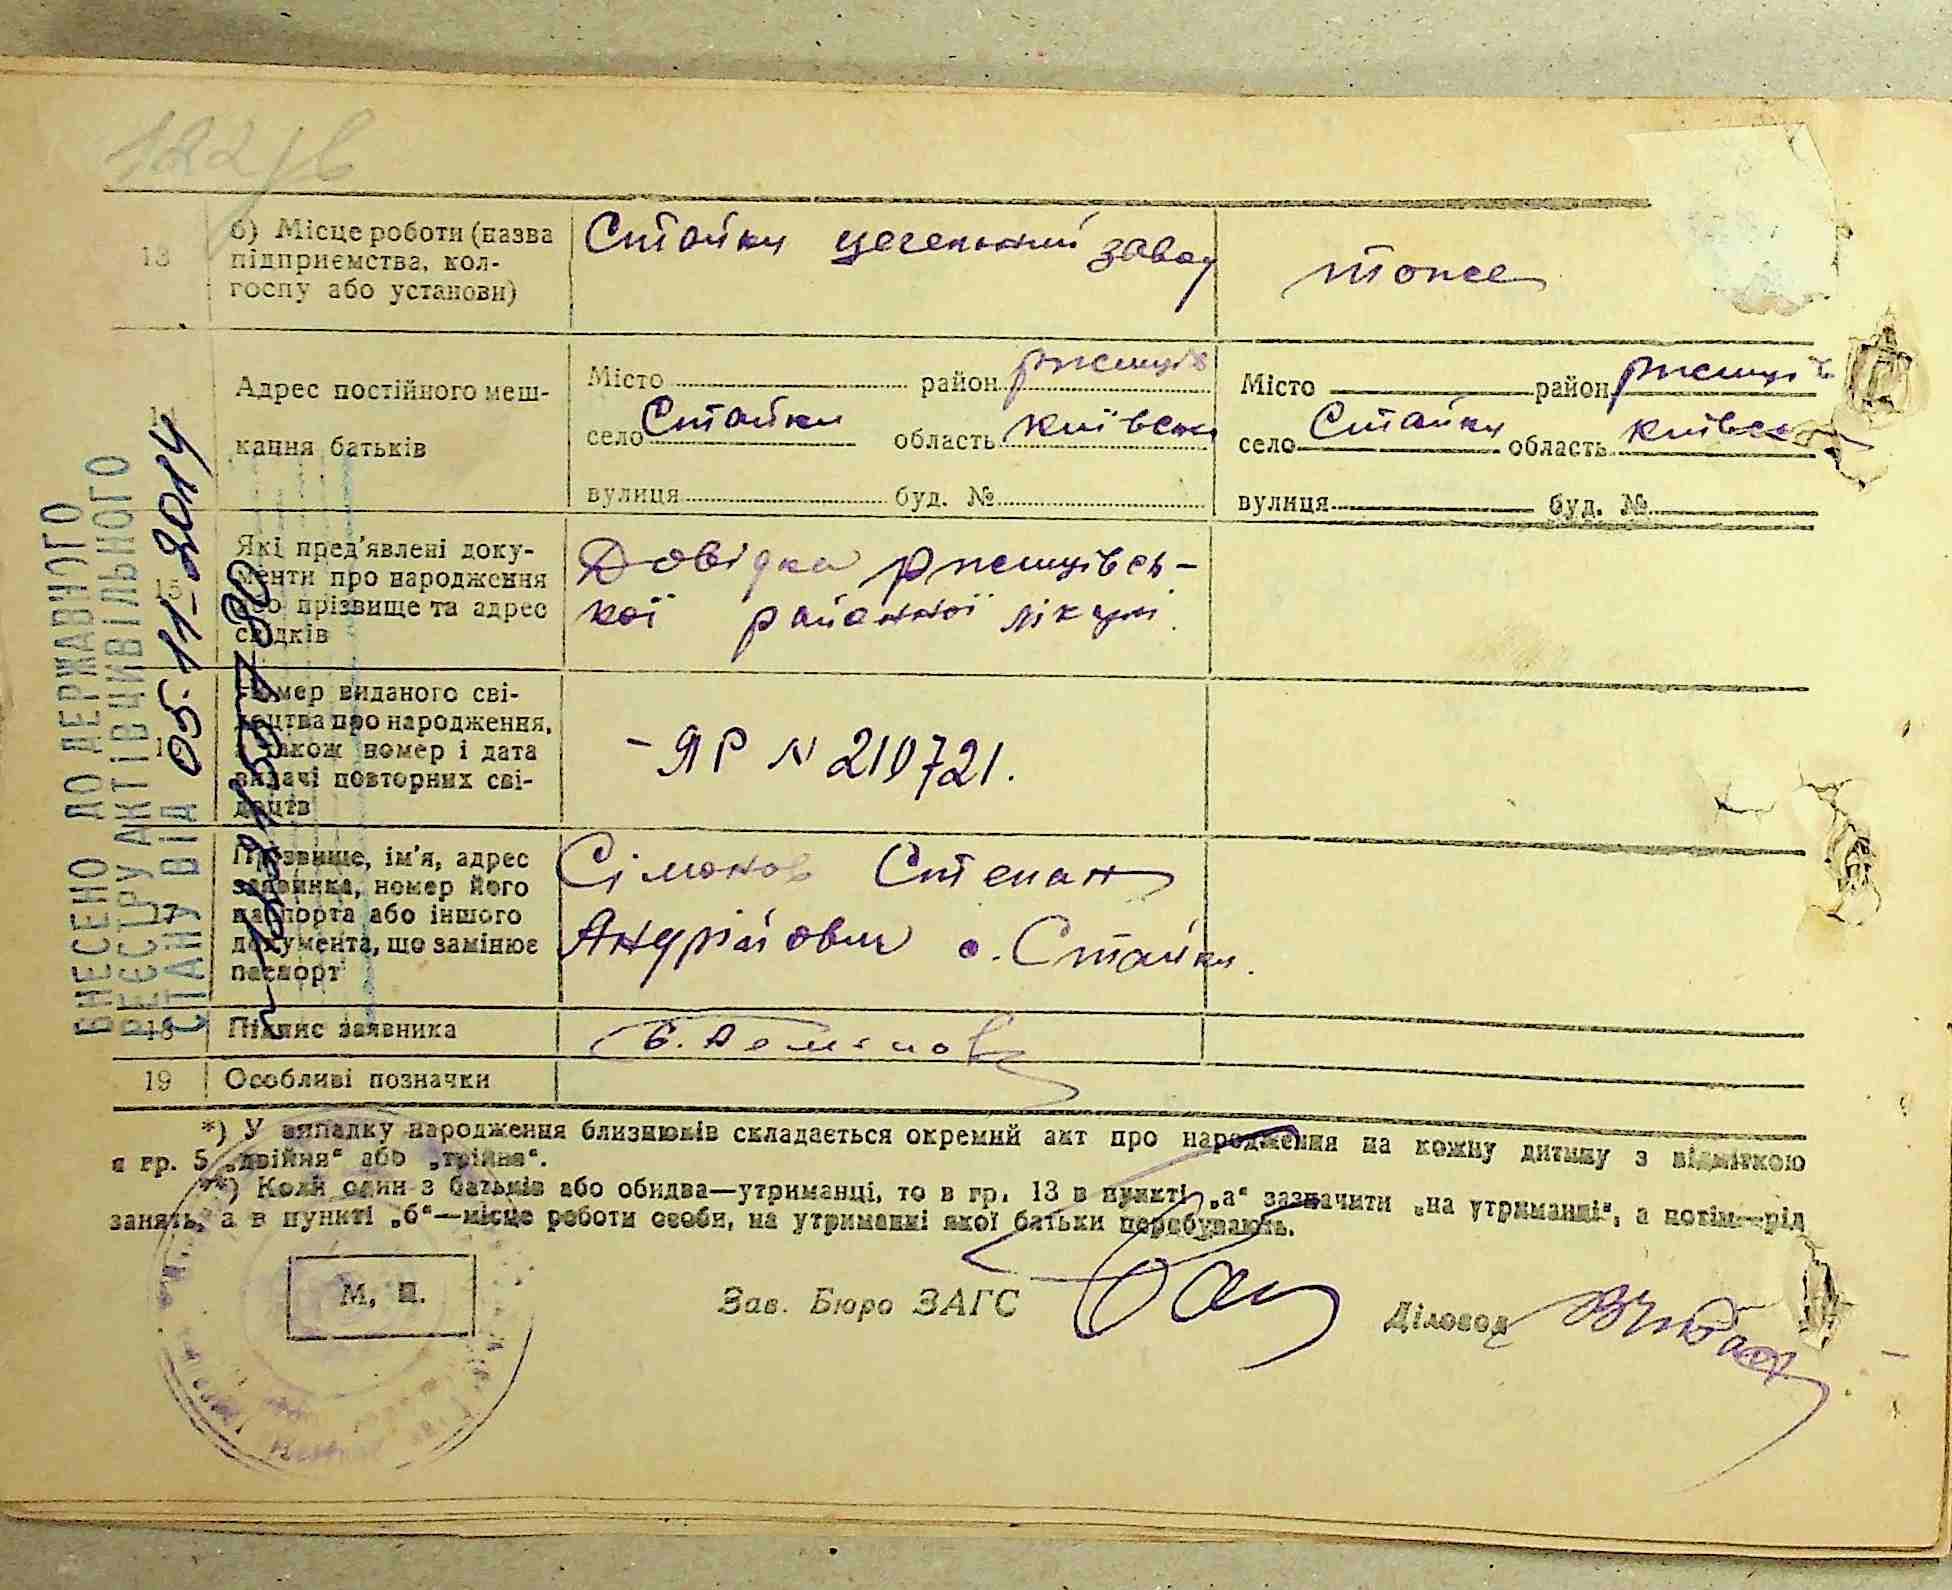 122
13
б) Місце роботи (назва
підприємства, кол-
госпу або установи)
Стайки цегельний завод
тоже
14
Адрес постійного меш-
кання батьків
Місто район Ржищів
село Стайки область Київська
вулиця буд. №
Місто район Ржищів
село Стайки область Київськ
вулиця буд. №
15
Які пред'явлені доку-
менти про народження
або прізвище та адрес
свідків
Довідка Ржищівсь-
кої районної лікарні.
Номер виданого сві-
доцтва про народження,
а також номер і дата
видачі повторних сві-
доцтв
- ЯР N 210721.
17
Прізвище, ім'я, адрес
заявника, номер його
паспорта або іншого
документа, що замінює
паспорт
Сімонов Степан
Андрійович с. Стайки.
18
Підпис заявника
19
Особливі позначки
ВНЕСЕНО ДО ДЕРЖАВНОГО
РЕЄСТРУ АКТІВ ЦИВІЛЬНОГО
СТАНУ ВІД 05-11-2014
*) У випадку народження близнюків складається окремий акт про народження на кожну дитину з відміткою
в гр. 5 „двійня“ або „трійня“.
**) Коли один з батьків або обидва—утриманці, то в гр. 13 в пункті „а“ зазначити „на утриманні“, а потім—рід
занять, а в пункті „б“—місце роботи особи, на утриманні якої батьки перебувають.
М. П.
Зав. Бюро ЗАГС
Діловод